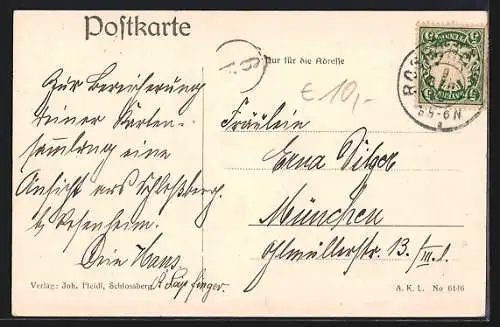 Postkarte
Nur für die Adresse
Zur Bereicherung
deiner Karten-
sammlung eine
Ansicht aus Schloßberg.
b/ Rosenheim.
Dein Hans
€ 10,-
Fräulein
Erna Dilger
München
Ohlmüllerstr. 13/III.l.
5-6N
Verlag: Joh. Heidl, Schlossberg.
A. K. L. No 6146